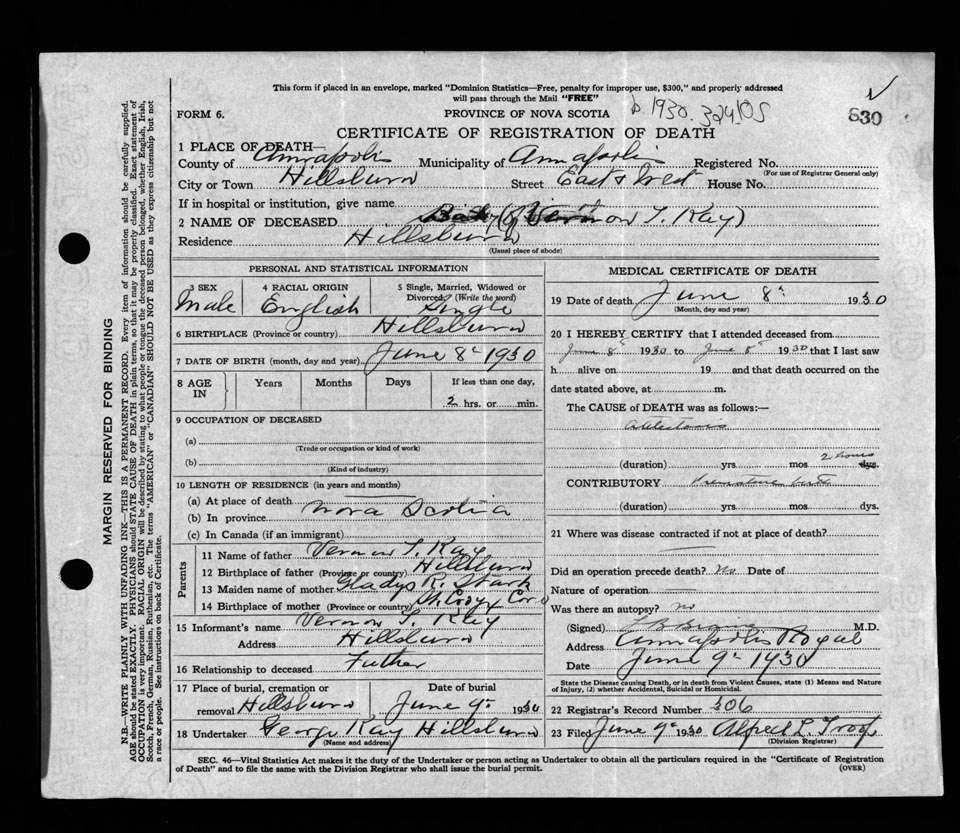 This form if placed in an envelope, marked "Dominion Statistics—Free, penalty for improper use, $300," and properly addressed
will pass through the Mail "FREE"
FORM 6.
PROVINCE OF NOVA SCOTIA
1930.
630
CERTIFICATE OF REGISTRATION OF DEATH
1 PLACE OF DEATH—
County of Annapolis Municipality of Annapolis Registered No.
(For use of Registrar General only)
City or Town Hillsburn Street East & West House No.
If in hospital or institution, give name
2 NAME OF DECEASED Baby (of Vernon T. Kay)
Residence Hillsburn
(Usual place of abode)
PERSONAL AND STATISTICAL INFORMATION
3 SEX 4 RACIAL ORIGIN 5 Single, Married, Widowed or
Divorced, (Write the word)
Male English Single
6 BIRTHPLACE (Province or country) Hillsburn
7 DATE OF BIRTH (month, day and year) June 8 1930
8 AGE IN Years Months Days If less than one day,
2 hrs. or min.
9 OCCUPATION OF DECEASED
(a)
(Trade or occupation or kind of work)
(b)
(Kind of industry)
10 LENGTH OF RESIDENCE (in years and months)
(a) At place of death
(b) In province Nova Scotia
(c) In Canada (if an immigrant)
Parents
11 Name of father Vernon T. Kay
12 Birthplace of father (Province or country) Hillsburn
13 Maiden name of mother Gladys R.
14 Birthplace of mother (Province or country)
15 Informant's name Vernon T. Kay
Address Hillsburn
16 Relationship to deceased Father
17 Place of burial, cremation or Date of burial
removal Hillsburn June 9 1930
18 Undertaker George Kay Hillsburn
(Name and address)
MEDICAL CERTIFICATE OF DEATH
19 Date of death June 8 1930
(Month, day and year)
20 I HEREBY CERTIFY that I attended deceased from
June 8 1930 to June 8 1930 that I last saw
h alive on 19 and that death occurred on the
date stated above, at m.
The CAUSE of DEATH was as follows:—
Atelectasis
2 hours
(duration) yrs. mos. dys.
CONTRIBUTORY Premature birth
(duration) yrs. mos. dys.
21 Where was disease contracted if not at place of death?
Did an operation precede death? No Date of
Nature of operation
Was there an autopsy? no
(Signed) M.D.
Address Annapolis Royal
Date June 9 1930
State the Disease causing Death, or in death from Violent Causes, state (1) Means and Nature
of Injury, (2) whether Accidental, Suicidal or Homicidal.
22 Registrar's Record Number 306
23 Filed June 9 1930 Alfred L. Troop
(Division Registrar)
SEC. 46—Vital Statistics Act makes it the duty of the Undertaker or person acting as Undertaker to obtain all the particulars required in the "Certificate of Registration
of Death" and to file the same with the Division Registrar who shall issue the burial permit.
(OVER)
MARGIN RESERVED FOR BINDING
N.B.—WRITE PLAINLY WITH UNFADING INK—THIS IS A PERMANENT RECORD. Every item of information should be carefully supplied.
AGE should be stated EXACTLY. PHYSICIANS should STATE CAUSE OF DEATH in plain terms, so that it may be properly classified. Exact statement of
OCCUPATION is very important. RACIAL ORIGIN will be described by stating to what people or tongue the deceased person belonged, whether English, Irish,
Scotch, French, German, Russian, Ruthenian, etc. The terms "AMERICAN" or "CANADIAN" SHOULD NOT BE USED as they express citizenship but not
a race or people. See instructions on back of Certificate.